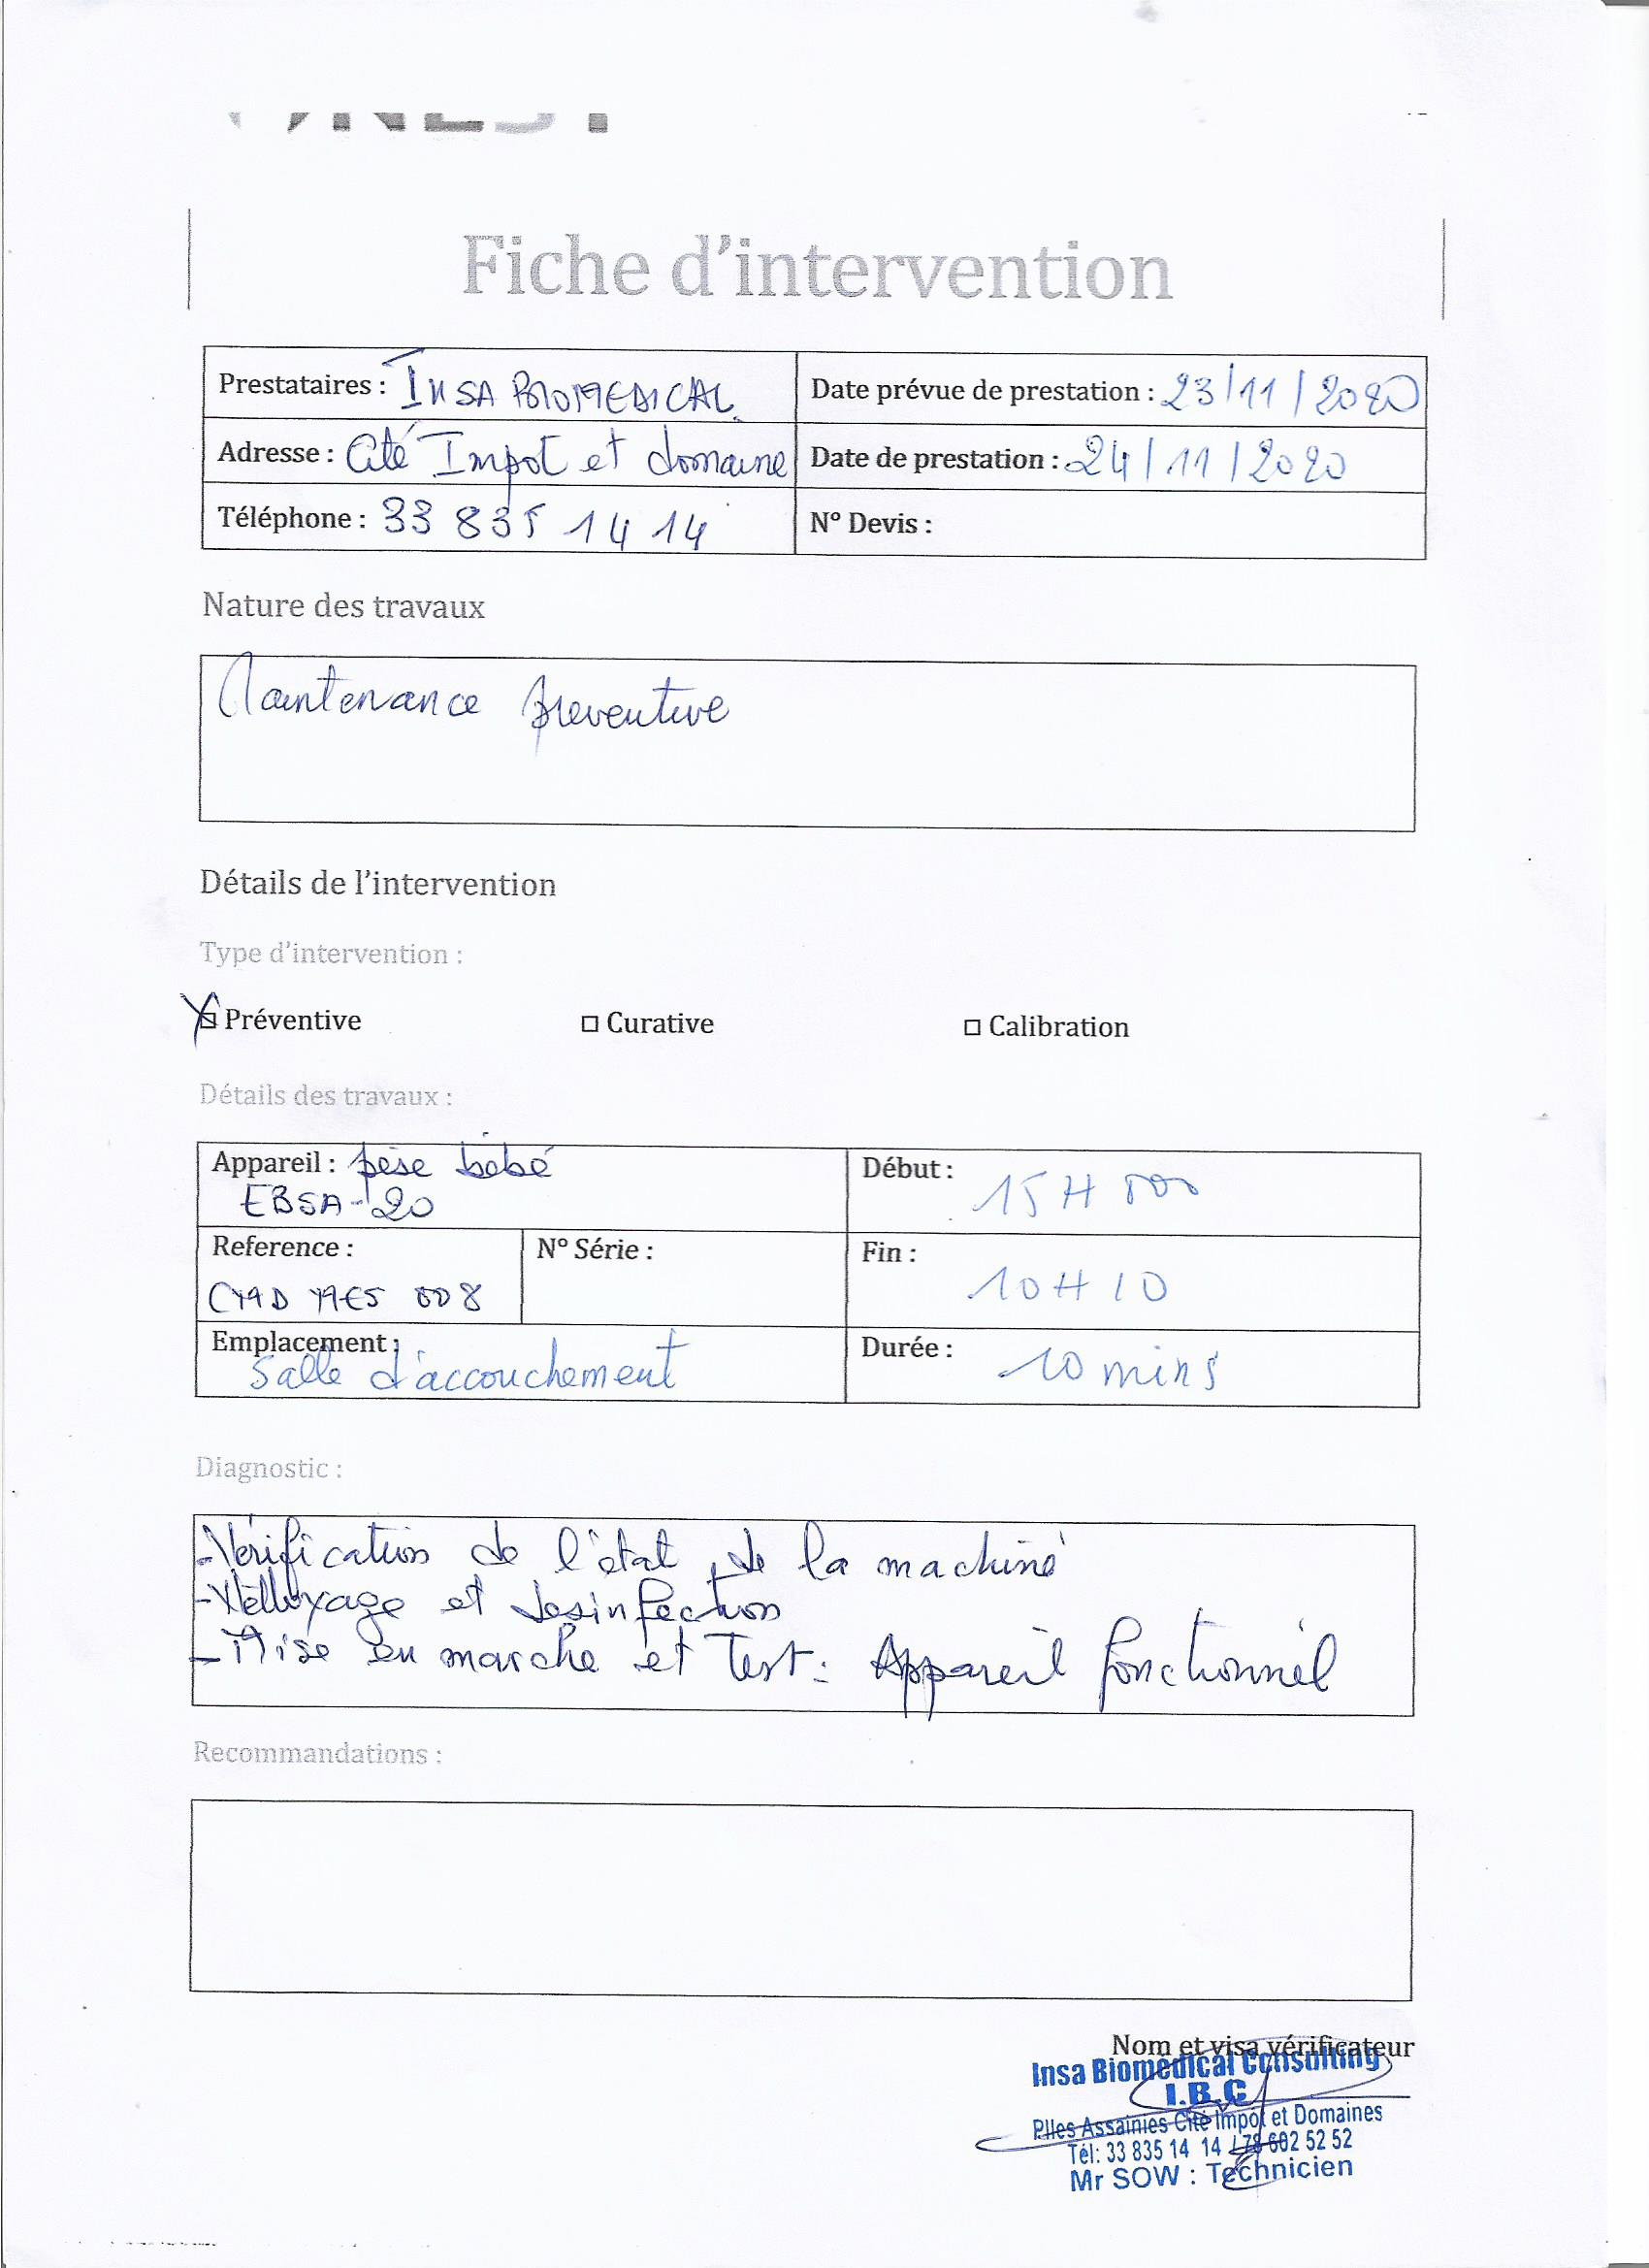 Fiche d'intervention
Prestataires : INSA BIOMEDICAL
Date prévue de prestation : 23/11/2020
Adresse : Cité Impot et domaine
Date de prestation : 24/11/2020
Téléphone : 33 835 14 14
N° Devis :
Nature des travaux
Maintenance preventive
Détails de l'intervention
Type d'intervention :
Préventive
Curative
Calibration
Détails des travaux :
Appareil : pèse bébé
EBSA-20
Début : 15H
Reference :
N° Série :
Fin : 10H10
008
Emplacement :
Salle d'accouchement
Durée : 10 mins
Diagnostic :
-Vérification de l'état de la machine
-Nettoyage et desinfection
-Mise en marche et Test : Appareil fonctionnel
Recommandations :
Nom et visa vérificateur
Insa Biomédical Consulting
I.B.C
Plles Assainies Cité Impôt et Domaines
Tél: 33 835 14 14 / 78 602 52 52
Mr SOW : Technicien